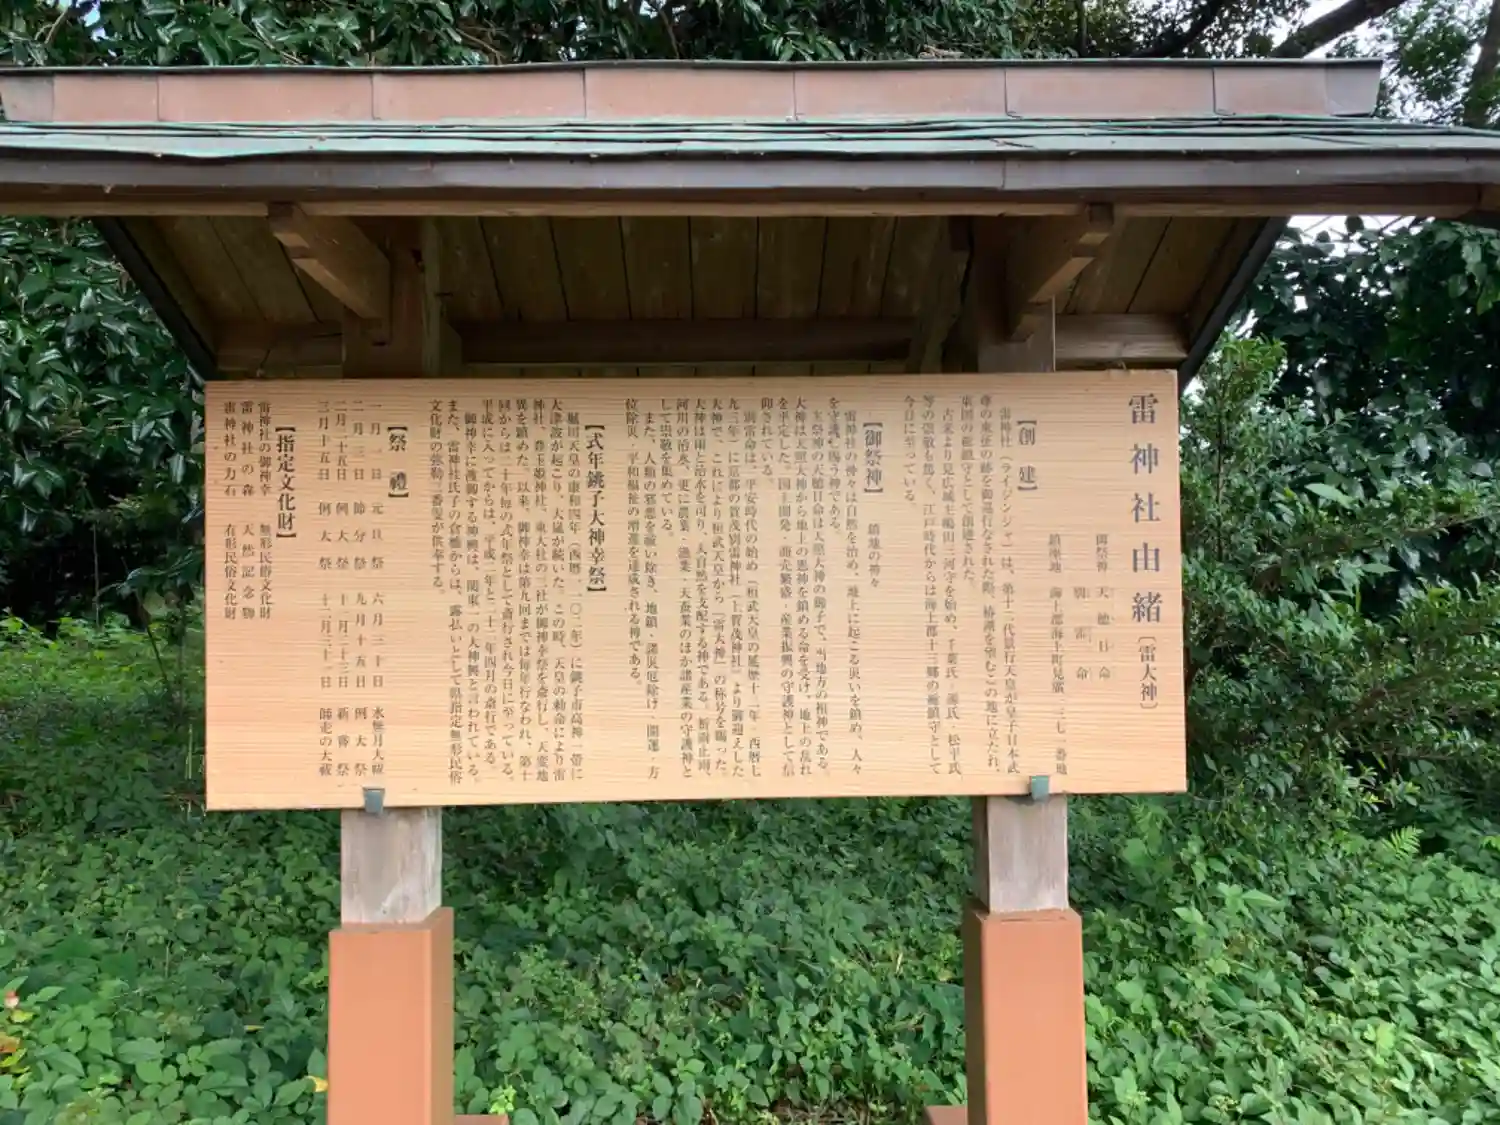 雷神社由緒〔雷大神〕
御祭神 天穂日命
別雷命
鎮座地 海上郡海上町見廣一三七一番地
【創建】
雷神社（ライジンジャ）は、第十二代景行天皇が皇子日本武
尊の東征の跡を御巡行なされた際、椿湖を望むこの地に立たれ、
東国の鎮護守として創建された。
古来より見広城主嶋田三河守を始め、千葉氏・源氏・松平氏
等の崇敬も篤く、江戸時代からは海上郡十三郷の総鎮守として
今日に至っている。
【御祭神】 鎮地の神々
雷神社の神々は自然を治め、地上に起こる災いを鎮め、人々
を守護し賜う神である。
主祭神の天穂日命は天照大神の御子で、当地方の祖神である。
大神は天照大神から地上の悪神を鎮める命を受け、地上の乱れ
を平定した。国土開発・商売繁盛・産業振興の守護神として信
仰されている。
別雷命は、平安時代の始め（桓武天皇の延暦十二年・西暦七
九三年）に京都の賀茂別雷神社（上賀茂神社）より御迎えした
大神で、これにより桓武天皇から「雷大神」の称号を賜った。
大神は雨と治水を司り、大自然を支配する神である。祈雨止雨、
河川の治水、更に農業・漁業・天蚕業のほか諸産業の守護神と
して崇敬を集めている。
また、人類の邪悪を祓い除き、地鎮・諸災厄除け・開運・方
位除災・平和福祉の増進を達成される神である。
【式年銚子大神幸祭】
堀川天皇の康和四年（西暦一一〇二年）に銚子市高神一帯に
大津波が起こり、大嵐が続いた。この時、天皇の勅命により雷
神社、豊玉姫神社、東大社の三社が御神幸祭を斎行し、天変地
異を鎮めた。以来、御神幸は第九回までは毎年行なわれ、第十
回からは二十年毎の式年祭として斎行され今日に至っている。
平成に入ってからは、平成二年と二十二年四月の斎行である。
御神幸に渡御する神輿は、関東一の大神輿と言われている。
また、雷神社氏子の倉橋からは、露払いとして県指定無形民俗
文化財の弥勒三番叟が供奉する。
【祭禮】
一月一日 元旦祭 六月三十日 水無月大祓
二月三日 節分祭 九月十五日 例大祭
二月二十五日 例大祭 十一月二十三日 新嘗祭
三月十五日 例大祭 十二月三十一日 師走の大祓
【指定文化財】
雷神社の御神幸 無形民俗文化財
雷神社の森 天然記念物
雷神社の力石 有形民俗文化財